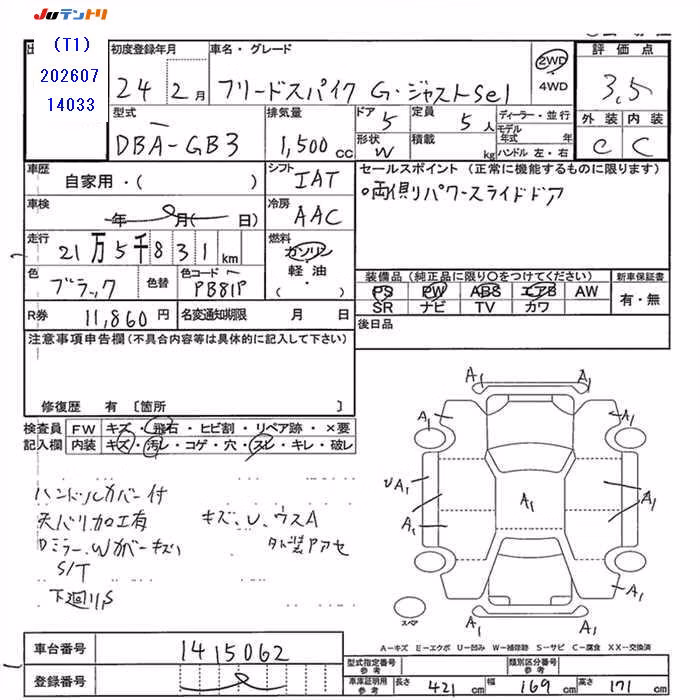 JUテントリ
(T1)
202607
14033
初度登録年月
24 2月
車名・グレード
フリードスパイク G・ジャストSel
2WD
4WD
評価点
3.5
外装 内装
C C
型式
DBA-GB3
排気量
1,500 cc
ドア
5
定員
5人
形状
W
積載
kg
ディーラー・並行
モデル年式 年
ハンドル 左・右
車歴
自家用・( )
シフト
IAT
セールスポイント(正常に機能するものに限ります)
○両側リパワースライドドア
車検
年 月( 日)
冷房
AAC
走行
21万5千831km
燃料
ガソリン
軽油
( )
色
ブラック
色替
色コード
PB81P
装備品(純正品に限り○をつけてください)
PS PW ABS エアB AW
SR ナビ TV カワ
新車保証書
有・無
R券
11,860円
名変通知期限 月 日
後日品
注意事項申告欄(不具合内容等は具体的に記入して下さい)
修復歴 有 〔箇所 〕
検査員記入欄
FW キズ・飛石・ヒビ割・リペア跡・×要
内装 キズ・汚レ・コゲ・穴・スレ・キレ・破レ
ハンドルカバー付
天バリ加工有
キズ、U、ウスA
Dミラー、Wカバーキズ
S/T
下廻りS
A1 A1
A1 A1
UA1 A1
A1 A1
A1
A1 A1
スペア
A-キズ E-エクボ U-凹み W-補修跡 S-サビ C-腐食 XX-交換済
車台番号
1415062
登録番号
型式指定番号
参考
類別区分番号
参考
車庫証明用
参考
長さ 421 cm 幅 169 cm 高さ 171 cm